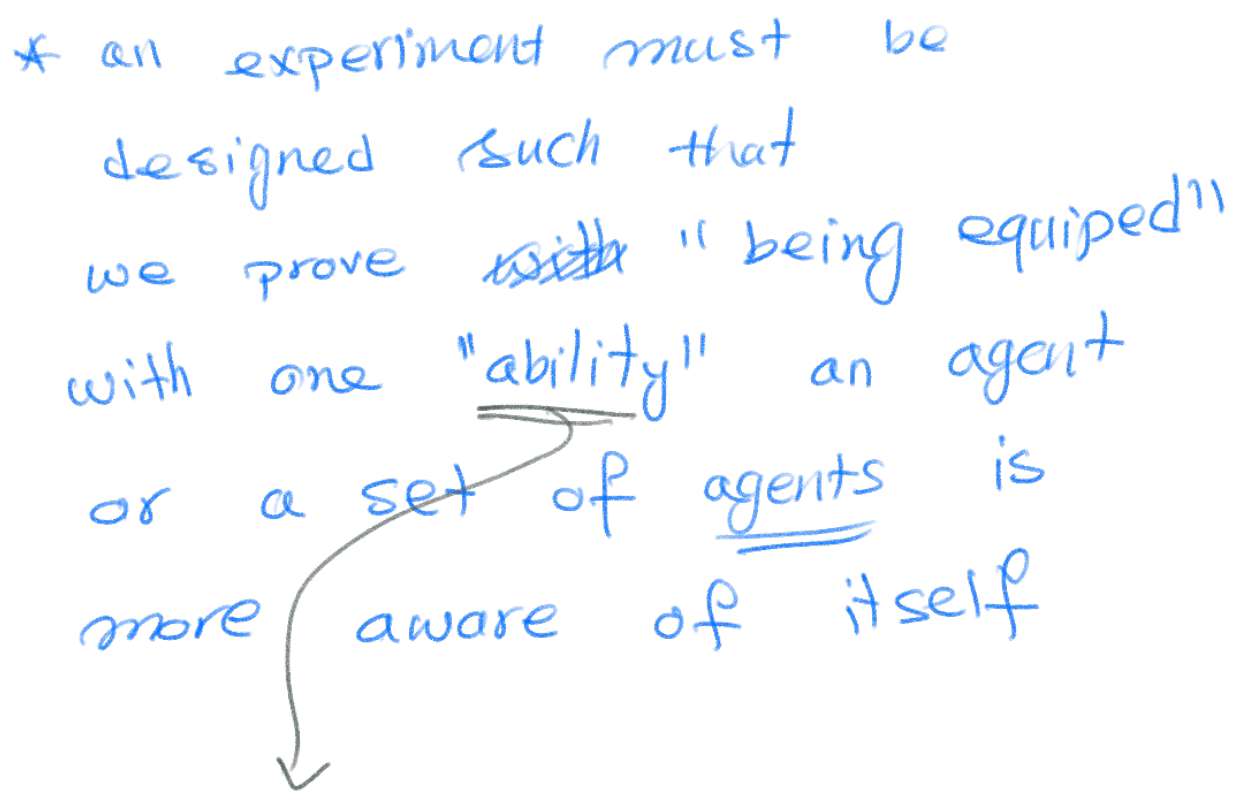 * an experiment must be
designed such that
we prove with "being equiped"
with one "ability" an agent
or a set of agents is
more aware of itself